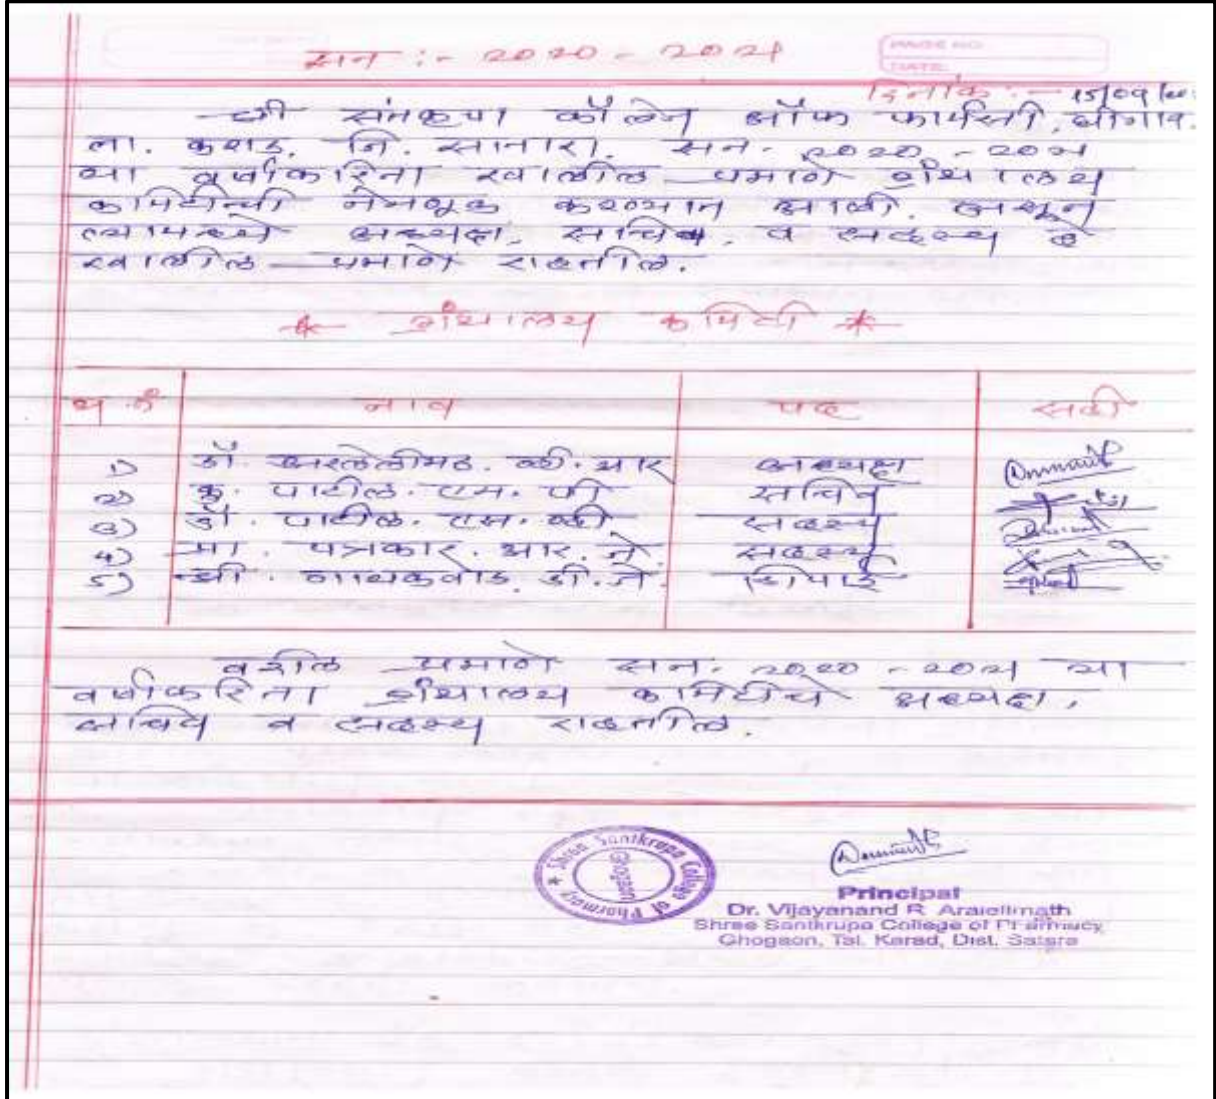 सन :- २०२० - २०२१
PAGE NO.
DATE
दिनांक :- 15/09/
श्री संतकृपा कॉलेज ऑफ फार्मसी, घोगाव.
ता. कराड. जि. सातारा. सन. २०२० - २०२१
या वर्षाकरिता खालील प्रमाणे ग्रंथालय
कमिटीची नेमणूक करण्यात आली. असून
त्यामध्ये अध्यक्ष, सचिव, व सदस्य हे
खालील प्रमाणे राहतील.
* ग्रंथालय कमिटी *
अ.नं नाव पद सही
1) डॉ. अरलेलीमठ. व्ही. आर अध्यक्ष
2) कु. पाटील. एस. पी सचिव
3) डॉ. पाटील. एस. व्ही सदस्य
4) प्रा. पत्रकार. आर. जे. सदस्य
5) श्री. गायकवाड. डी. जे. शिपाई
वरील प्रमाणे सन. २०२० - २०२१ या
वर्षाकरिता ग्रंथालय कमिटीचे अध्यक्ष,
सचिव व सदस्य राहतील.
Shree Santkrupa College of Pharmacy
Ghogaon
Principal
Dr. Vijayanand R. Aralelimath
Shree Santkrupa College of Pharmacy
Ghogaon, Tal. Karad, Dist. Satara